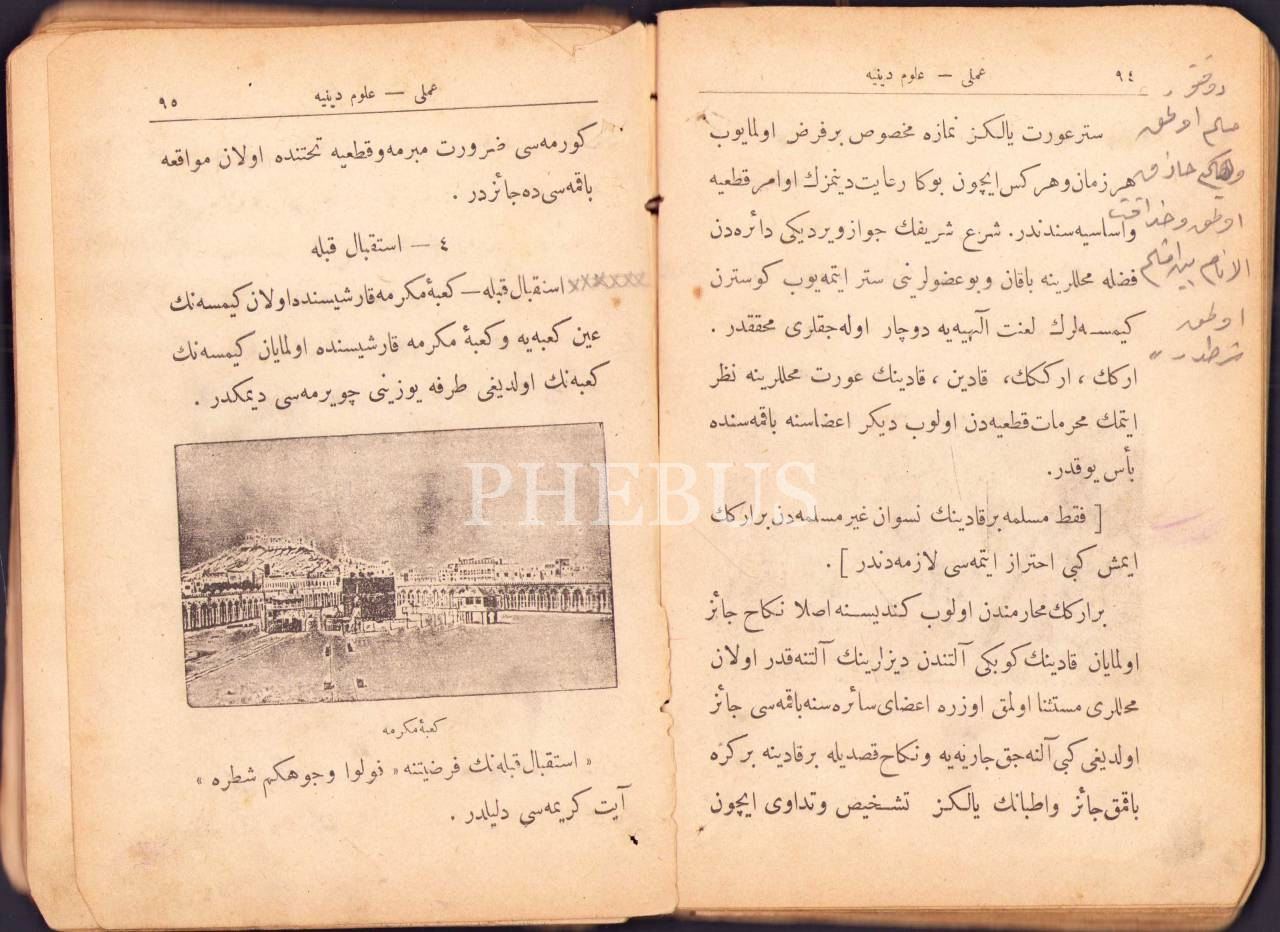 ٩٤
عملی — علوم دینیه
ستر عورت یالکز نمازه مخصوص بر فرض اولمایوب
هر زمان و هر کس ایچون بوکا رعایت دینمزك اوامر قطعیه
و اساسیه سندندر. شرع شریفك جواز ویردیکی دائره دن
فضله محللرینه باقان و بو عضولرینی ستر ایتمه یوب کوسترن
کیمسه لرك لعنت الٓهیه یه دوچار اوله جقلری محققدر .
ارکك ، ارککك، قادین ، قادینك عورت محللرینه نظر
ایتمك محرمات قطعیه دن اولوب دیکر اعضاسنه باقمه سنده
بأس یوقدر.
[ فقط مسلمه بر قادینك نسوان غیر مسلمه دن بر ارکك
ایمش کبی احتراز ایتمه سی لازمه دندر ] .
بر ارکك محارمندن اولوب کندیسنه اصلا نکاح جائز
اولمایان قادینك کوبکی آلتندن دیزلرینك آلتنه قدر اولان
محللری مستثنا اولمق اوزره اعضای سائره سنه باقمه سی جائز
اولدیغی کبی آلنه جق جاریه یه و نکاح قصدیله بر قادینه بر کره
باقمق جائز و اطبانك یالکز تشخیص و تداوی ایچون
اولمق
شرطدر
٩٥
عملی — علوم دینیه
کورمه سی ضرورت مبرمه و قطعیه تحتنده اولان مواقعه
باقمه سی ده جائزدر .
٤ — استقبال قبله
xxxxxx استقبال قبله — کعبۀ مکرمه قارشیسنده اولان کیمسه نك
عین کعبه یه و کعبۀ مکرمه قارشیسنده اولمایان کیمسه نك
کعبه نك اولدیغی طرفه یوزینی چویرمه سی دیمکدر .
کعبۀ مکرمه
« استقبال قبله نك فرضیتنه « فولوا وجوهکم شطره »
آیت کریمه سی دلیلدر .
PHEBUS